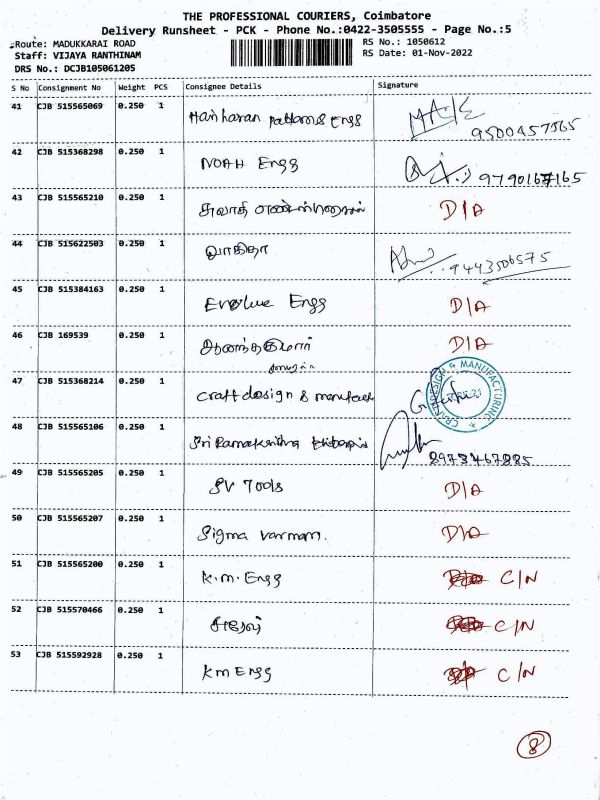 THE PROFESSIONAL COURIERS, Coimbatore
Delivery Runsheet - PCK - Phone No.:0422-3505555 - Page No.:5
Route: MADUKKARAI ROAD
RS No.: 1050612
Staff: VIJAYA RANTHINAM
RS Date: 01-Nov-2022
DRS No.: DCJB105061205
S No Consignment No Weight PCS Consignee Details Signature
41 CJB 515565069 0.250 1
Hariharan Engg
9500457565
42 CJB 515368298 0.250 1
NOAH Engg
9790167165
43 CJB 515565210 0.250 1
சுவாதி D/A
44 CJB 515622503 0.250 1
9443506575
45 CJB 515384163 0.250 1
Evolve Engg D/A
46 CJB 169539 0.250 1
ஆனந்தகுமார் D/A
47 CJB 515368214 0.250 1
Craft design & manufact
DESIGN & MANUFACTURING
48 CJB 515565106 0.250 1
Sri Ramakrishna
8973467885
49 CJB 515565205 0.250 1
SV Tools D/A
50 CJB 515565207 0.250 1
Sigma D/A
51 CJB 515565200 0.250 1
K.m. Engg C/N
52 CJB 515570466 0.250 1
C/N
53 CJB 515592928 0.250 1
Km Engg C/N
8